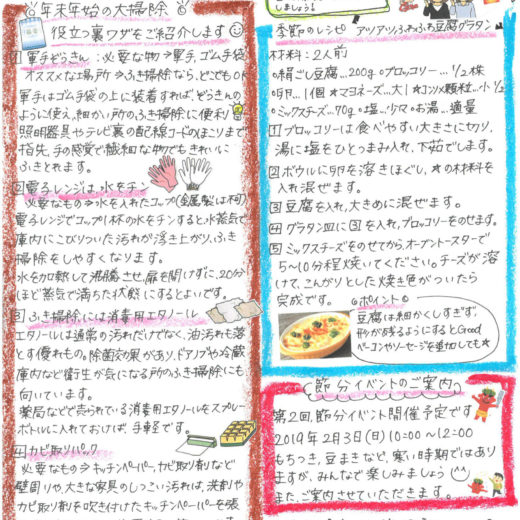 年末年始の大掃除
役立つ裏ワザをご紹介します
1 軍手ぞうきん:必要な物⇒軍手、ゴム手袋
オススメな場所⇒ふき掃除なら、どこでもOK
軍手はゴム手袋の上に装着すれば、ぞうきんの
ように使え、細かい所のふき掃除に便利
照明器具やテレビ裏の配線コードのほこりまで
指先、手の感覚で繊細な物でもきれいに
ふきとれます。
2 電子レンジは水をチン
必要なもの⇒水を入れたコップ(金属製は不可)
電子レンジでコップ1杯の水をチンすると、水蒸気で
庫内にこびりついた汚れが浮き上がり、ふき
掃除をしやすくなります。
水を加熱して沸騰させ、扉を開けずに、20分
ほど蒸気で満ちた状態にするとよいです。
3 ふき掃除には消毒用エタノール
エタノールは通常の汚れだけでなく、油汚れも落
とす優れもの。除菌効果があり、ドアノブや冷蔵
庫内など衛生が気になる所のふき掃除にも
向いています。
薬局などで売られている消毒用エタノールをスプレー
ボトルに入れておけば、手軽です。
4 カビ取りパック
必要なもの⇒キッチンペーパー、カビ取り剤など
壁周りや、大きな家具のしつこい汚れは、洗剤や
カビ取り剤を吹き付けたキッチンペーパーを張
しましょう!
季節のレシピ アツアツふわふわ豆腐グラタン
材料:2人前
◦絹ごし豆腐...200g ◦ブロッコリー...1/2株
◦卵...1個 ★マヨネーズ...大1 ★コンソメ顆粒...小1/2
◦ミックスチーズ...70g ◦塩...少々 ◦お湯...適量
1 ブロッコリーは食べやすい大きさに切り、
湯に塩をひとつまみ入れ、下茹でします。
2 ボウルに卵を溶きほぐし、★の材料を
入れ混ぜます。
3 豆腐を入れ、大きめに混ぜます。
4 グラタン皿に3を入れ、ブロッコリーをのせます。
5 ミックスチーズをのせてから、オーブントースターで
5~10分程焼いてください。チーズが溶
けて、こんがりとした焼き色がついたら
完成です。
◎ポイント◎
豆腐は細かくしすぎず、
形が残るようにするとGood
ベーコンやソーセージを追加しても★
節分イベントのご案内
第2回、節分イベント開催予定です
2019年2月3日(日)10:00~12:00
もちつき、豆まきなど、寒い時期ではあり
ますが、みんなで楽しみましょう(^^)
また、ご案内させていただきます。